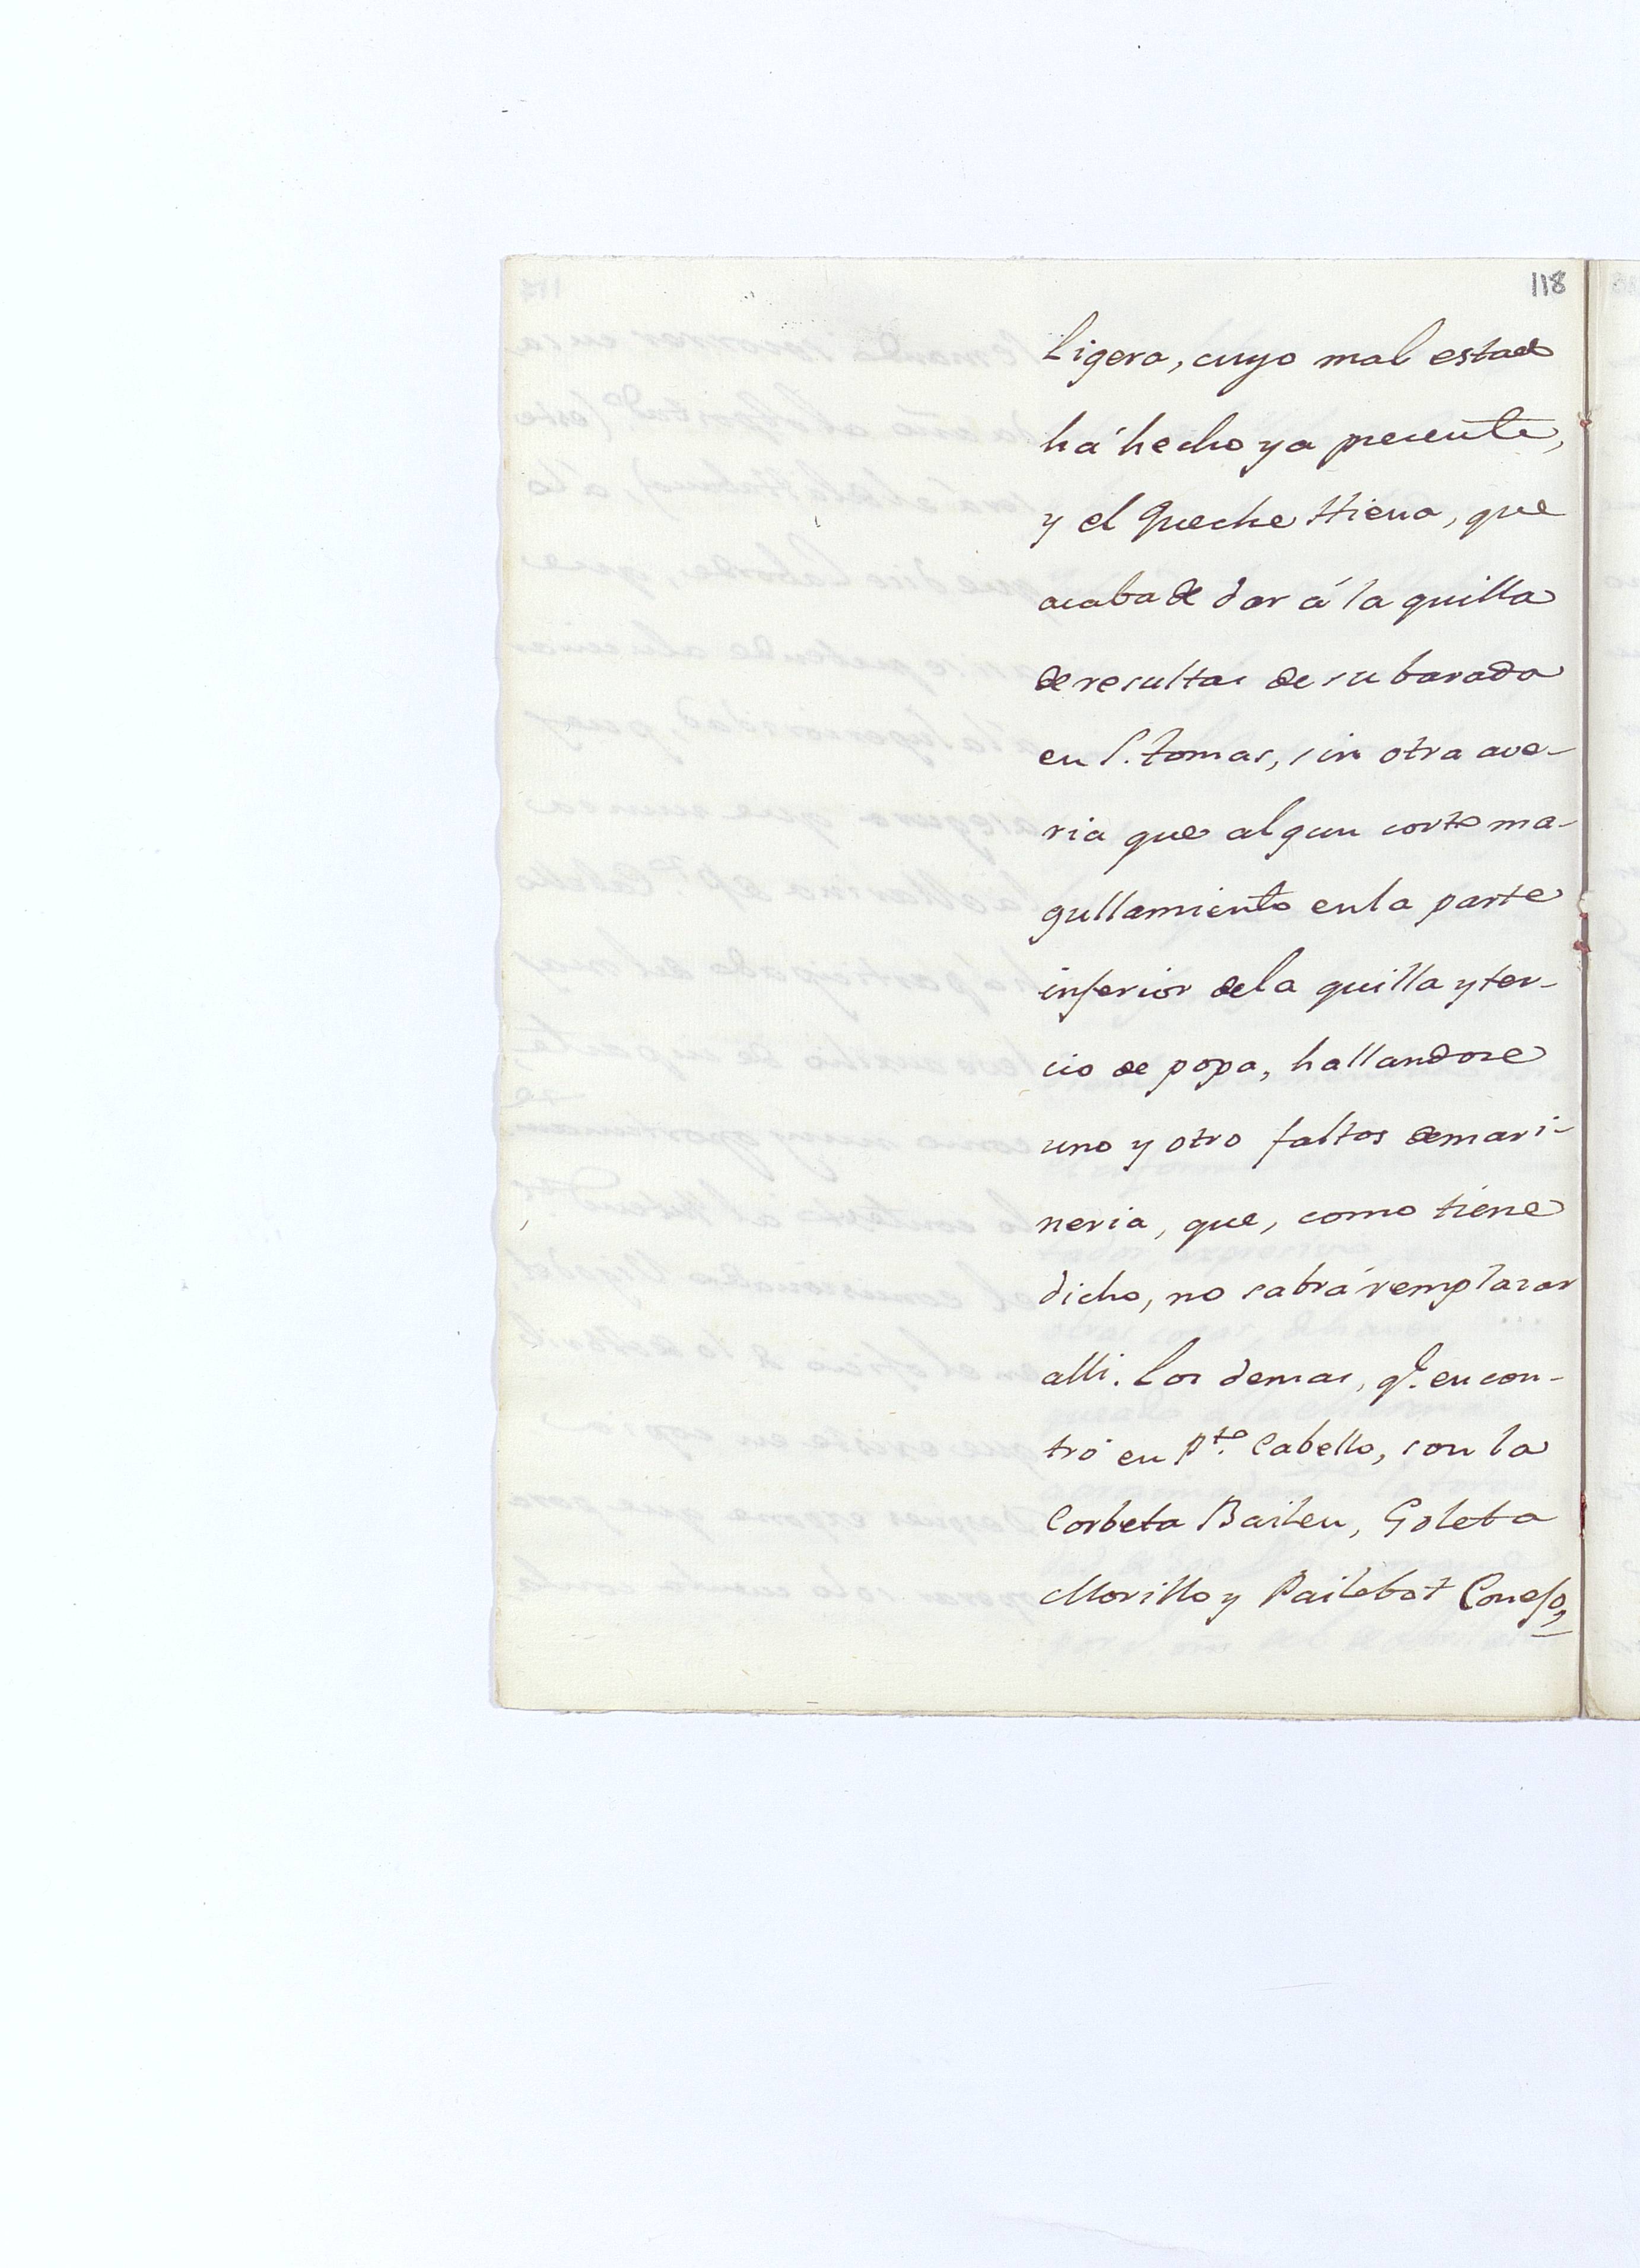 118
Ligera, cuyo mal estado
há hecho ya precente,
y el Queche Hiena, que
acaba de dar á la quilla
de resultas de su barada
en S. Tomas, sin otra ave-
ria que algun corto ma-
gullamiento en la parte
inferior de la quilla y ter-
cio de popa, hallandose
uno y otro faltos de mari-
neria, que, como tiene
dicho, no sabrá remplazar
alli. Los demas, q.e encon-
tró en P.to Cabello, son la
Corbeta Bailen, Goleta
Morillo y Pailebot Conejo,